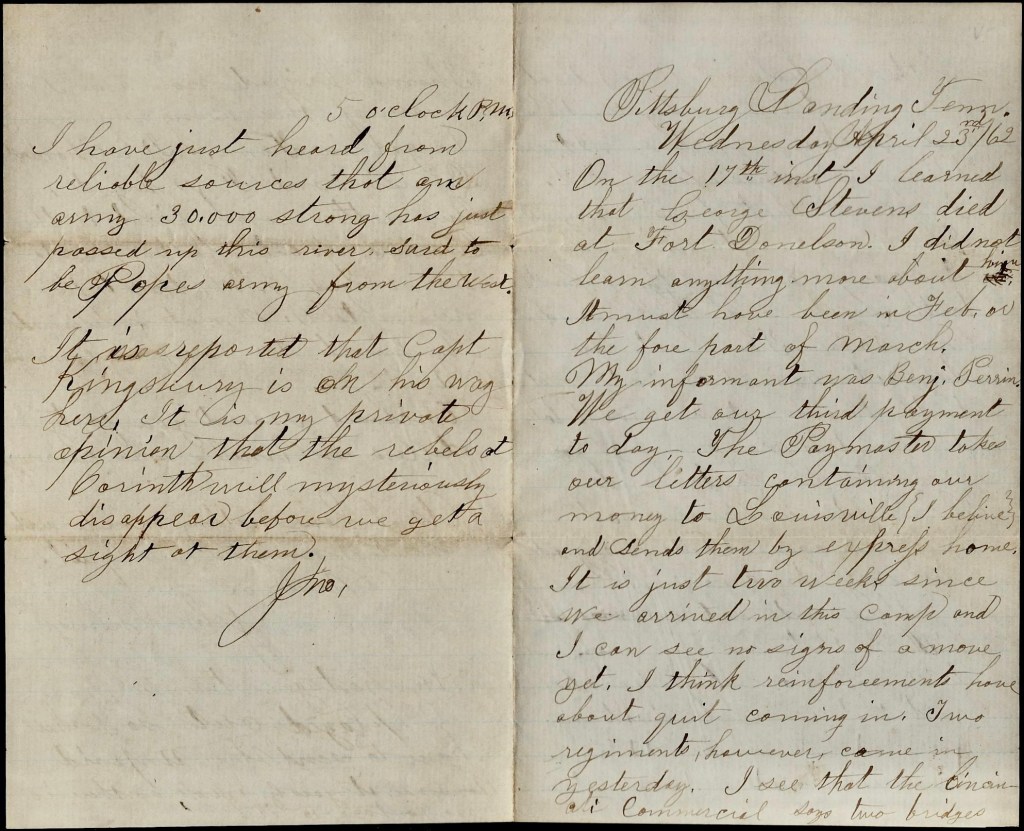 5 o'clock P.M.
I have just heard from
reliable sources that an
army 30.000 strong has just
passed up this river. Said to
be Popes army from the west.
It is reported that Capt
Kingsbury is on his way
here, It is my private
opinion that the rebels at
Corinth will mysteriously
disappear before we get a
sight at them.
Jno,
Pittsburg Landing Tenn.
Wednesday April 23rd/62
On the 17th inst I learned
that George Stevens died
at Fort Donelson. I did not
learn anything more about him
It must have been in Feb. or
the fore part of March.
My informant was Benj. Perrin.
We get our third payment
to day. The Paymaster takes
our letters containing our
money to Louisville (I believe)
and sends them by express home.
It is just two weeks since
we arrived in this camp and
I can see no signs of a move
yet. I think reinforcements have
about quit coming in. Two
regiments, however, came in
yesterday. I see that the Cincin-
ati Commercial says two bridges